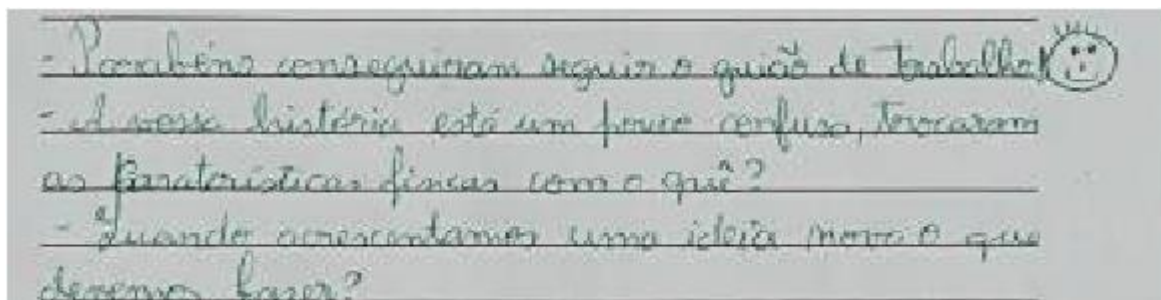 - Parabéns conseguiram seguir o guião de trabalho!
- A vossa história está um pouco confusa, trocaram
as características físicas com o quê?
- Quando acrescentamos uma ideia nova o que
devemos fazer?